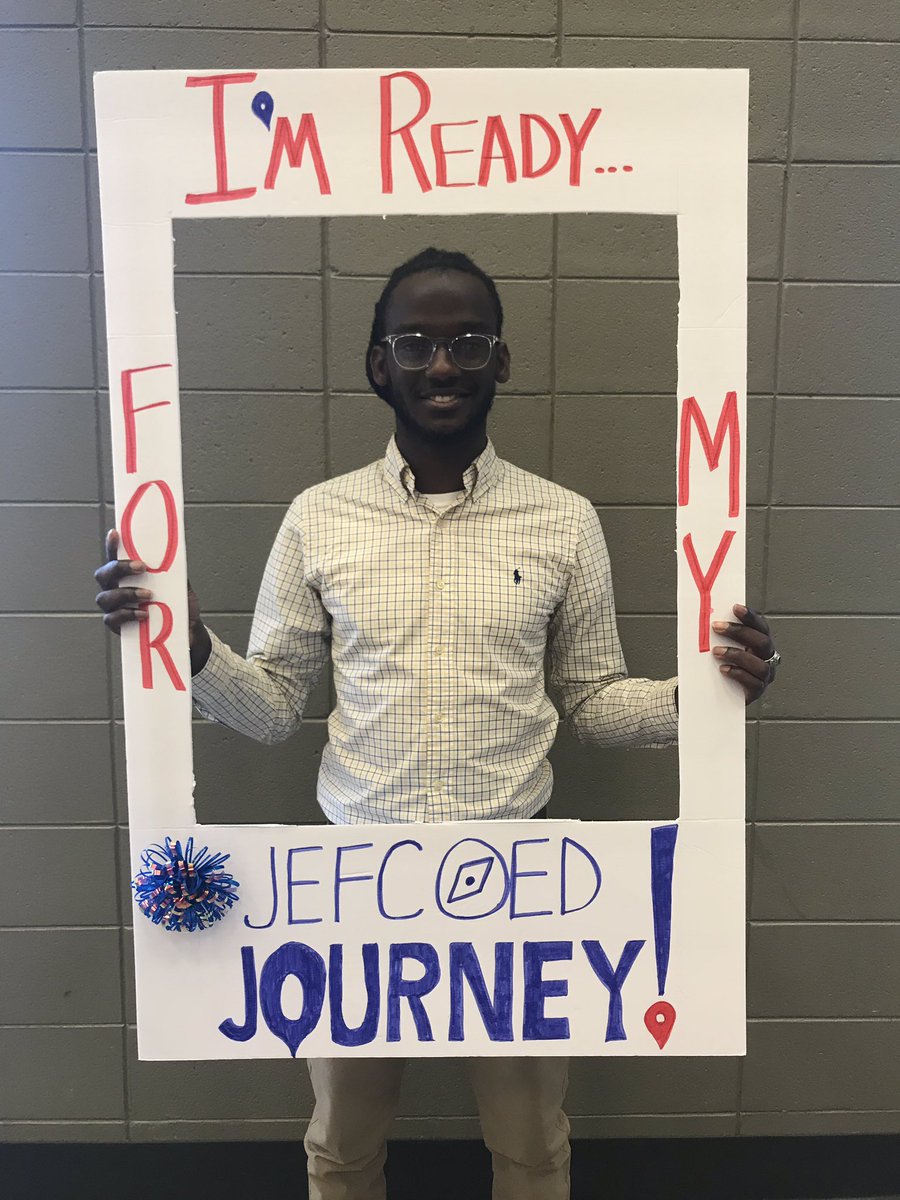 I'm Ready...
FOR
MY
JEFCOED
JOURNEY!